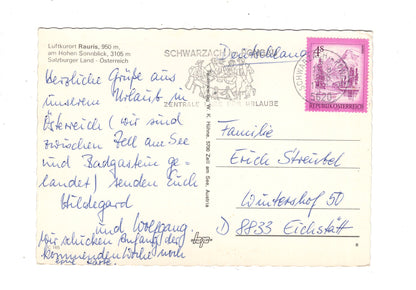 Luftkurort Rauris, 950 m,
am Hohen Sonnblick, 3105 m
Salzburger Land - Österreich
Herzliche Grüße aus
unserem Urlaub in
Österreich (wir sind
zwischen Zell am See
und Badgastein ge-
landet) senden Euch
Hildegard
und Wolfgang.
Wir schicken Anfang der
kommenden Woche noch
eine Karte.
SCHWARZACH
ZENTRALE
URLAUBE
Deutschland
W. K. Höhne, 5700 Zell am See, Austria
4S
REPUBLIK ÖSTERREICH
Familie
Erich Streubel
Wintershof 50
D 8833 Eichstätt